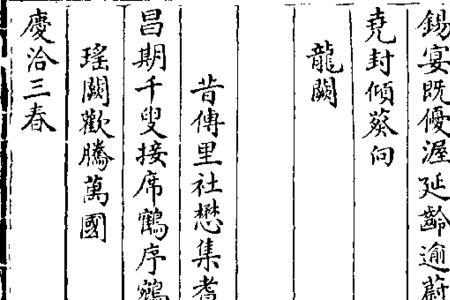 錫宴既優渥延齡逾蔚
堯封傾葵向
龍闕
昔傳里社懋集耆
昌期千叟接席鶴序鵷
瑤闕歡騰萬國
慶洽三春